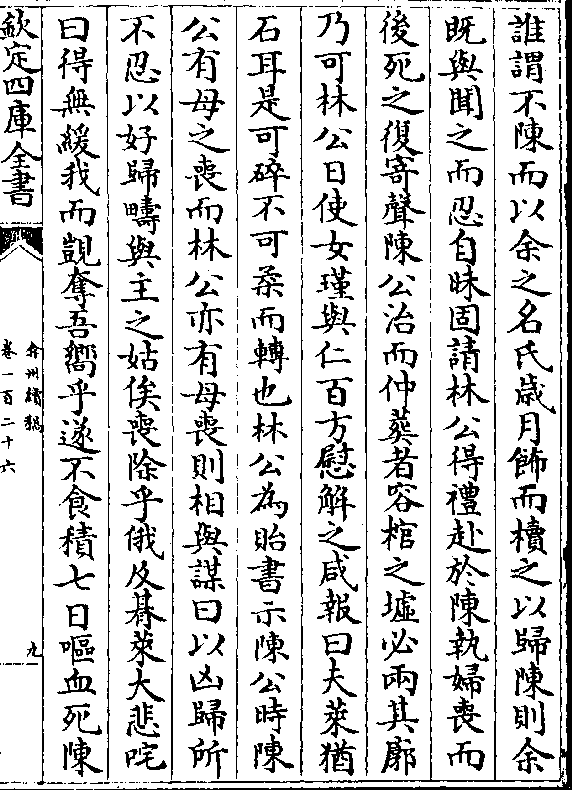 誰謂不陳而以余之名氏歲月飾而櫝之以歸陳則余
既與聞之而忍自昧固請林公得禮赴於陳執婦喪而
後死之復寄聲陳公治而仲葬者容棺之墟必兩其廓
乃可林公日使女瑾與仁百方慰解之咸報曰夫萊猶
石耳是可碎不可柔而轉也林公為貽書示陳公時陳
公有母之喪而林公亦有母喪則相與謀曰以凶歸所
不忍以好歸疇與主之姑俟喪除乎俄及朞萊大悲咤
曰得無緩我而覬奪吾嚮乎遂不食積七日嘔血死陳
欽定四庫全書
弇州續稿
卷一百二十六
九